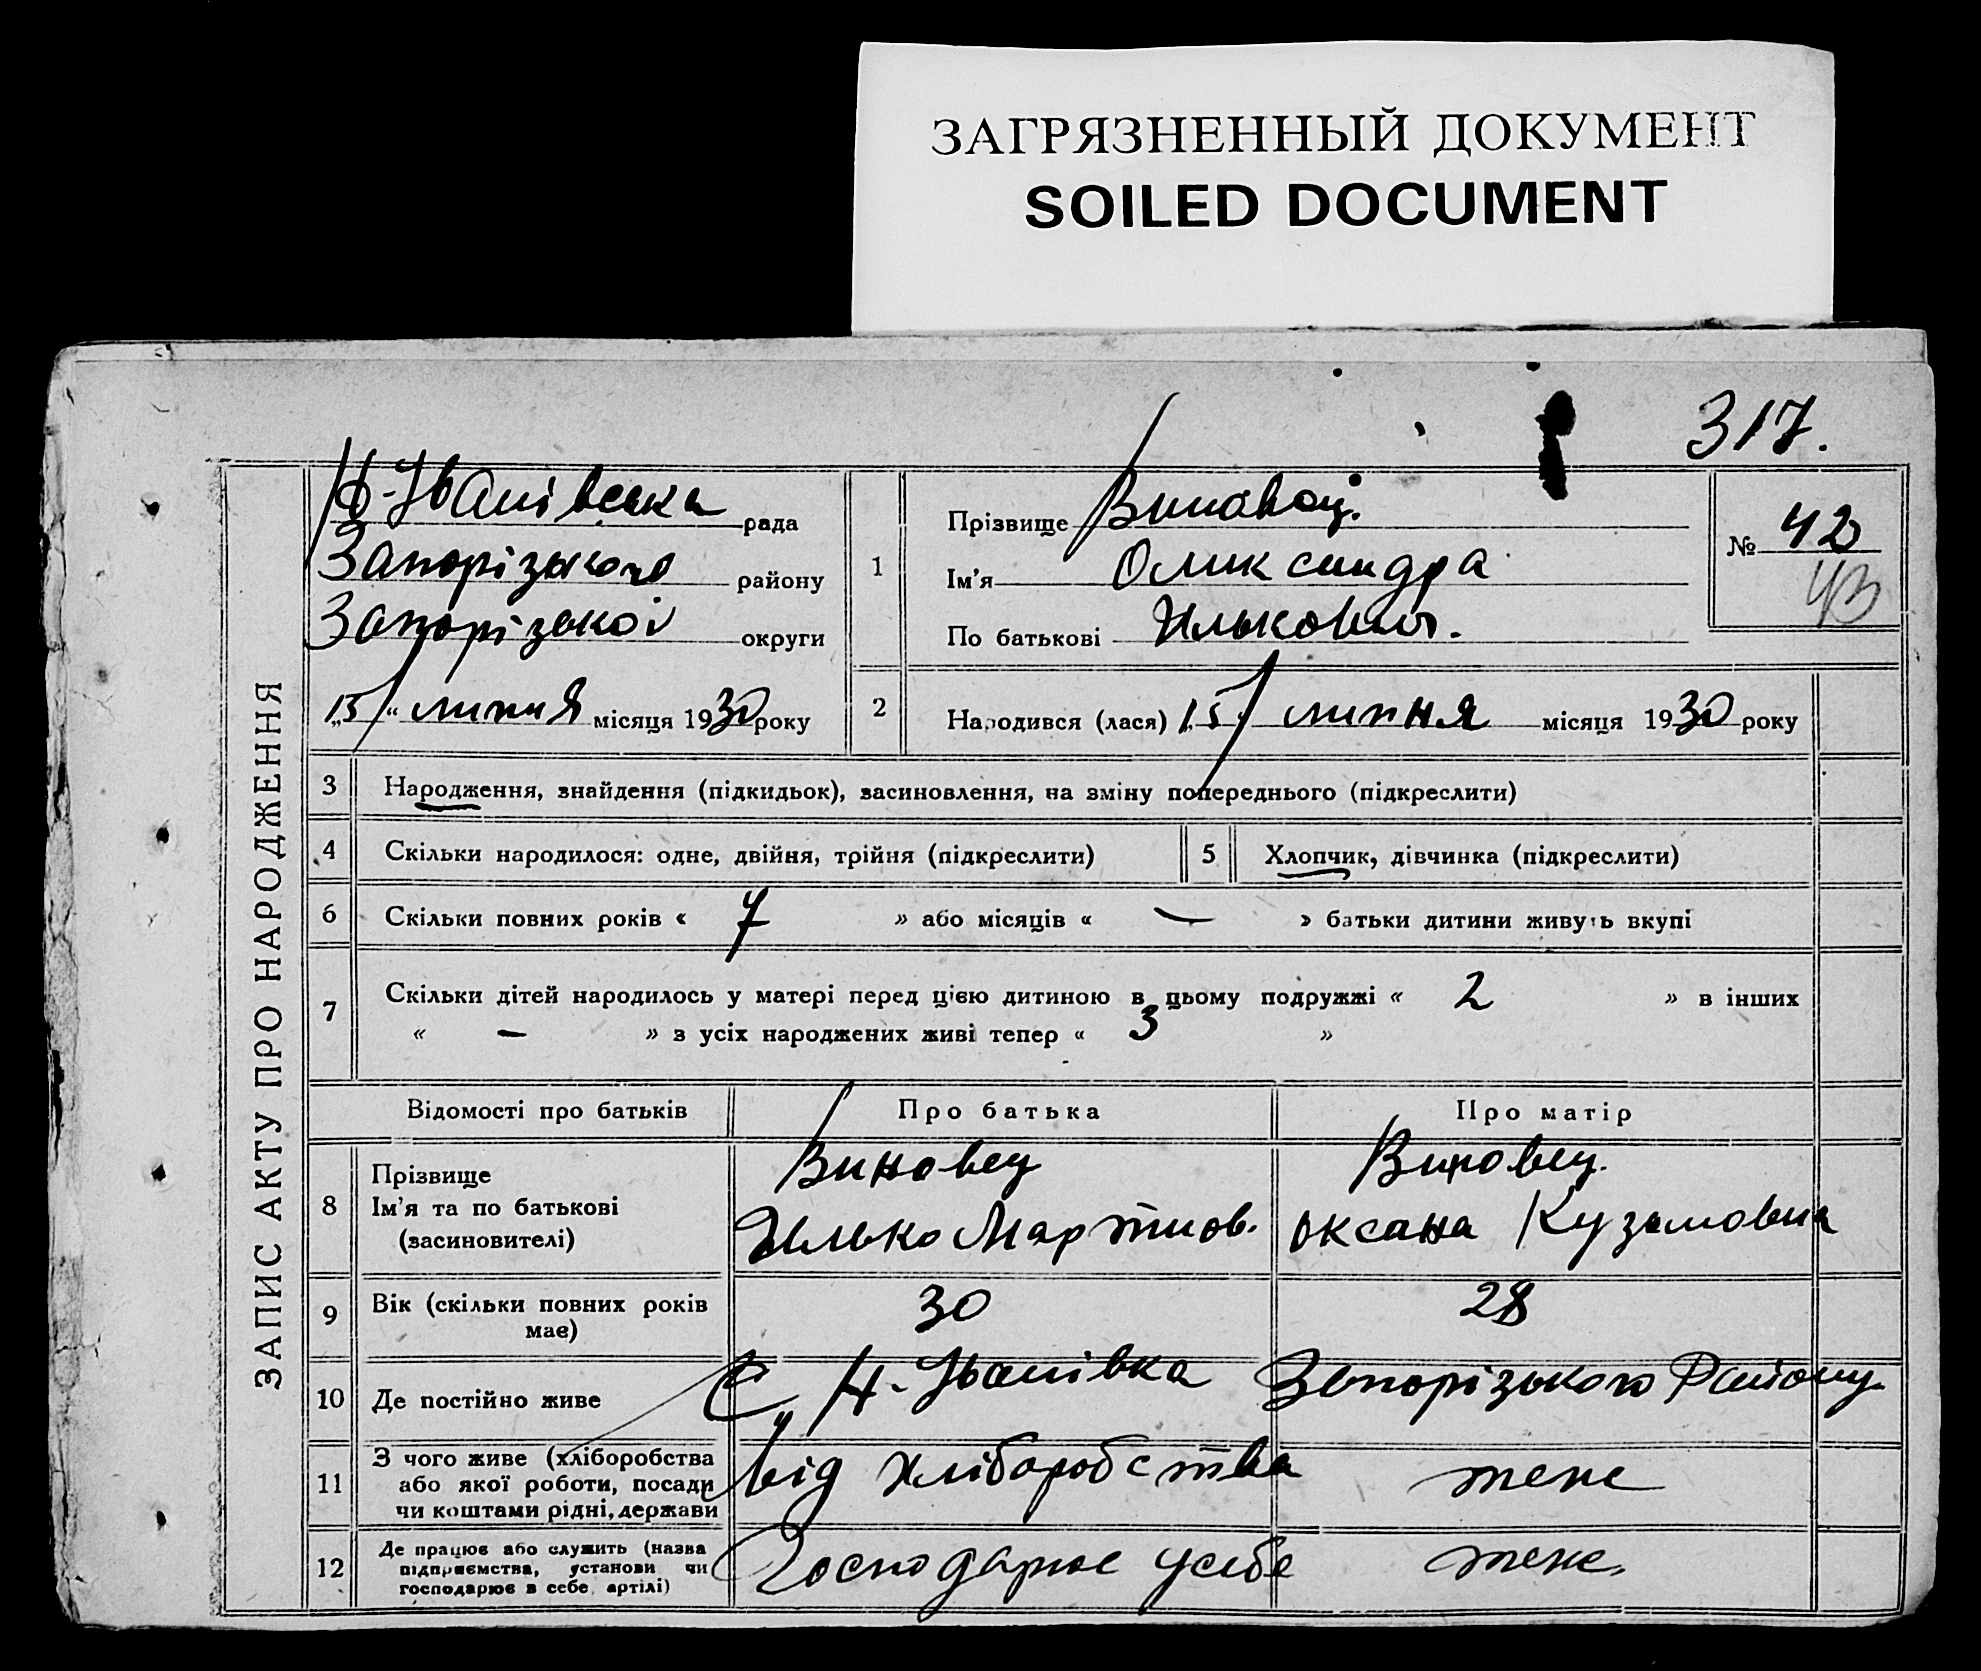 ЗАГРЯЗНЕННЫЙ ДОКУМЕНТ
SOILED DOCUMENT
317.
ЗАПИС АКТУ ПРО НАРОДЖЕННЯ
Н-Іванівська рада
Запорізького району
Запорізької округи
„15“ липня місяця 1930 року
1
Прізвище Виновец.
Ім'я Олександра
По батькові Ількович.
№ 42
43
2
Народився (лася) „15“ липня місяця 1930 року
3 Народження, знайдення (підкидьок), засиновлення, на зміну попереднього (підкреслити)
4 Скільки народилося: одне, двійня, трійня (підкреслити)
5 Хлопчик, дівчинка (підкреслити)
6 Скільки повних років « 7 » або місяців « — » батьки дитини живуть вкупі
7 Скільки дітей народилось у матері перед цією дитиною в цьому подружжі « 2 » в інших
« — » з усіх народжених живі тепер « 3 »
Відомості про батьків Про батька Про матір
8 Прізвище Виновец Виновец.
Ім'я та по батькові Ілько Мартинов. Оксана Кузьмовна
(засиновителі)
9 Вік (скільки повних років 30 28
має)
10 Де постійно живе С. Н-Іванівка Запорізького Району.
11 З чого живе (хліборобства від хліборобства теже
або якої роботи, посади
чи коштами рідні, держави
12 Де працює або служить (назва Господарює у себе теже.
підприємства, установи чи
господарює в себе, артілі)